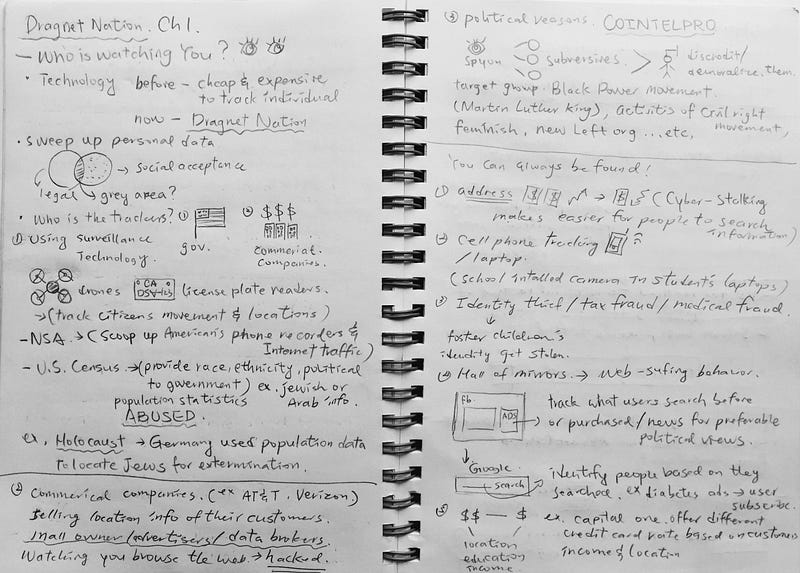 Dragnet Nation. Ch 1.
- Who is watching You?
· Technology before - cheap & expensive
to track individual
now - Dragnet Nation
· sweep up personal data
→ social acceptance
legal → grey area?
· Who is the trackers? ① ②
$$$
① Using surveillance
Technology.
gov.
commercial
companies.
drones
CA
license plate readers.
→ (track citizens movement & locations)
- NSA. → (Scoop up American's phone recorders &
Internet traffic)
- U.S. Census → (provide race, ethnicity, political
to government) ex. jewish or
population statistics Arab info.
ABUSED.
ex, Holocaust → Germany used population data
to locate Jews for extermination.
② Commerical companies. (ex AT&T. Verizon)
selling location info of their customers.
mall owner/advertisers/data brokers.
Watching you browse the web. → hacked...
③ political reasons. COINTELPRO
spyun subversives. > discredit/
demoralize them.
target group. Black Power movement.
(Martin Luther king), activitis of Civil right
movement,
feminish, new Left org ... etc,
You can always be found!
① address $ $ → (Cyber-stalking
makes easier for people to search
information)
② Cell phone tracking
/laptop.
(school intalled camera in student's laptops)
③ Identity thief / tax fraud / medical fraud.
↓
foster children's
identity get stolen.
④ Hall of mirrors. → Web-sufing behavor.
fb.
ADS →
track what users search before
or purchased/news for preferable
political views.
↓
Google.
search
identify people based on they
searched. ex diabetes ads → user
subscribe.
⑤ $$ — $ ex. capital one. offer different
credit card rate based on customers
income & location
location
education
income